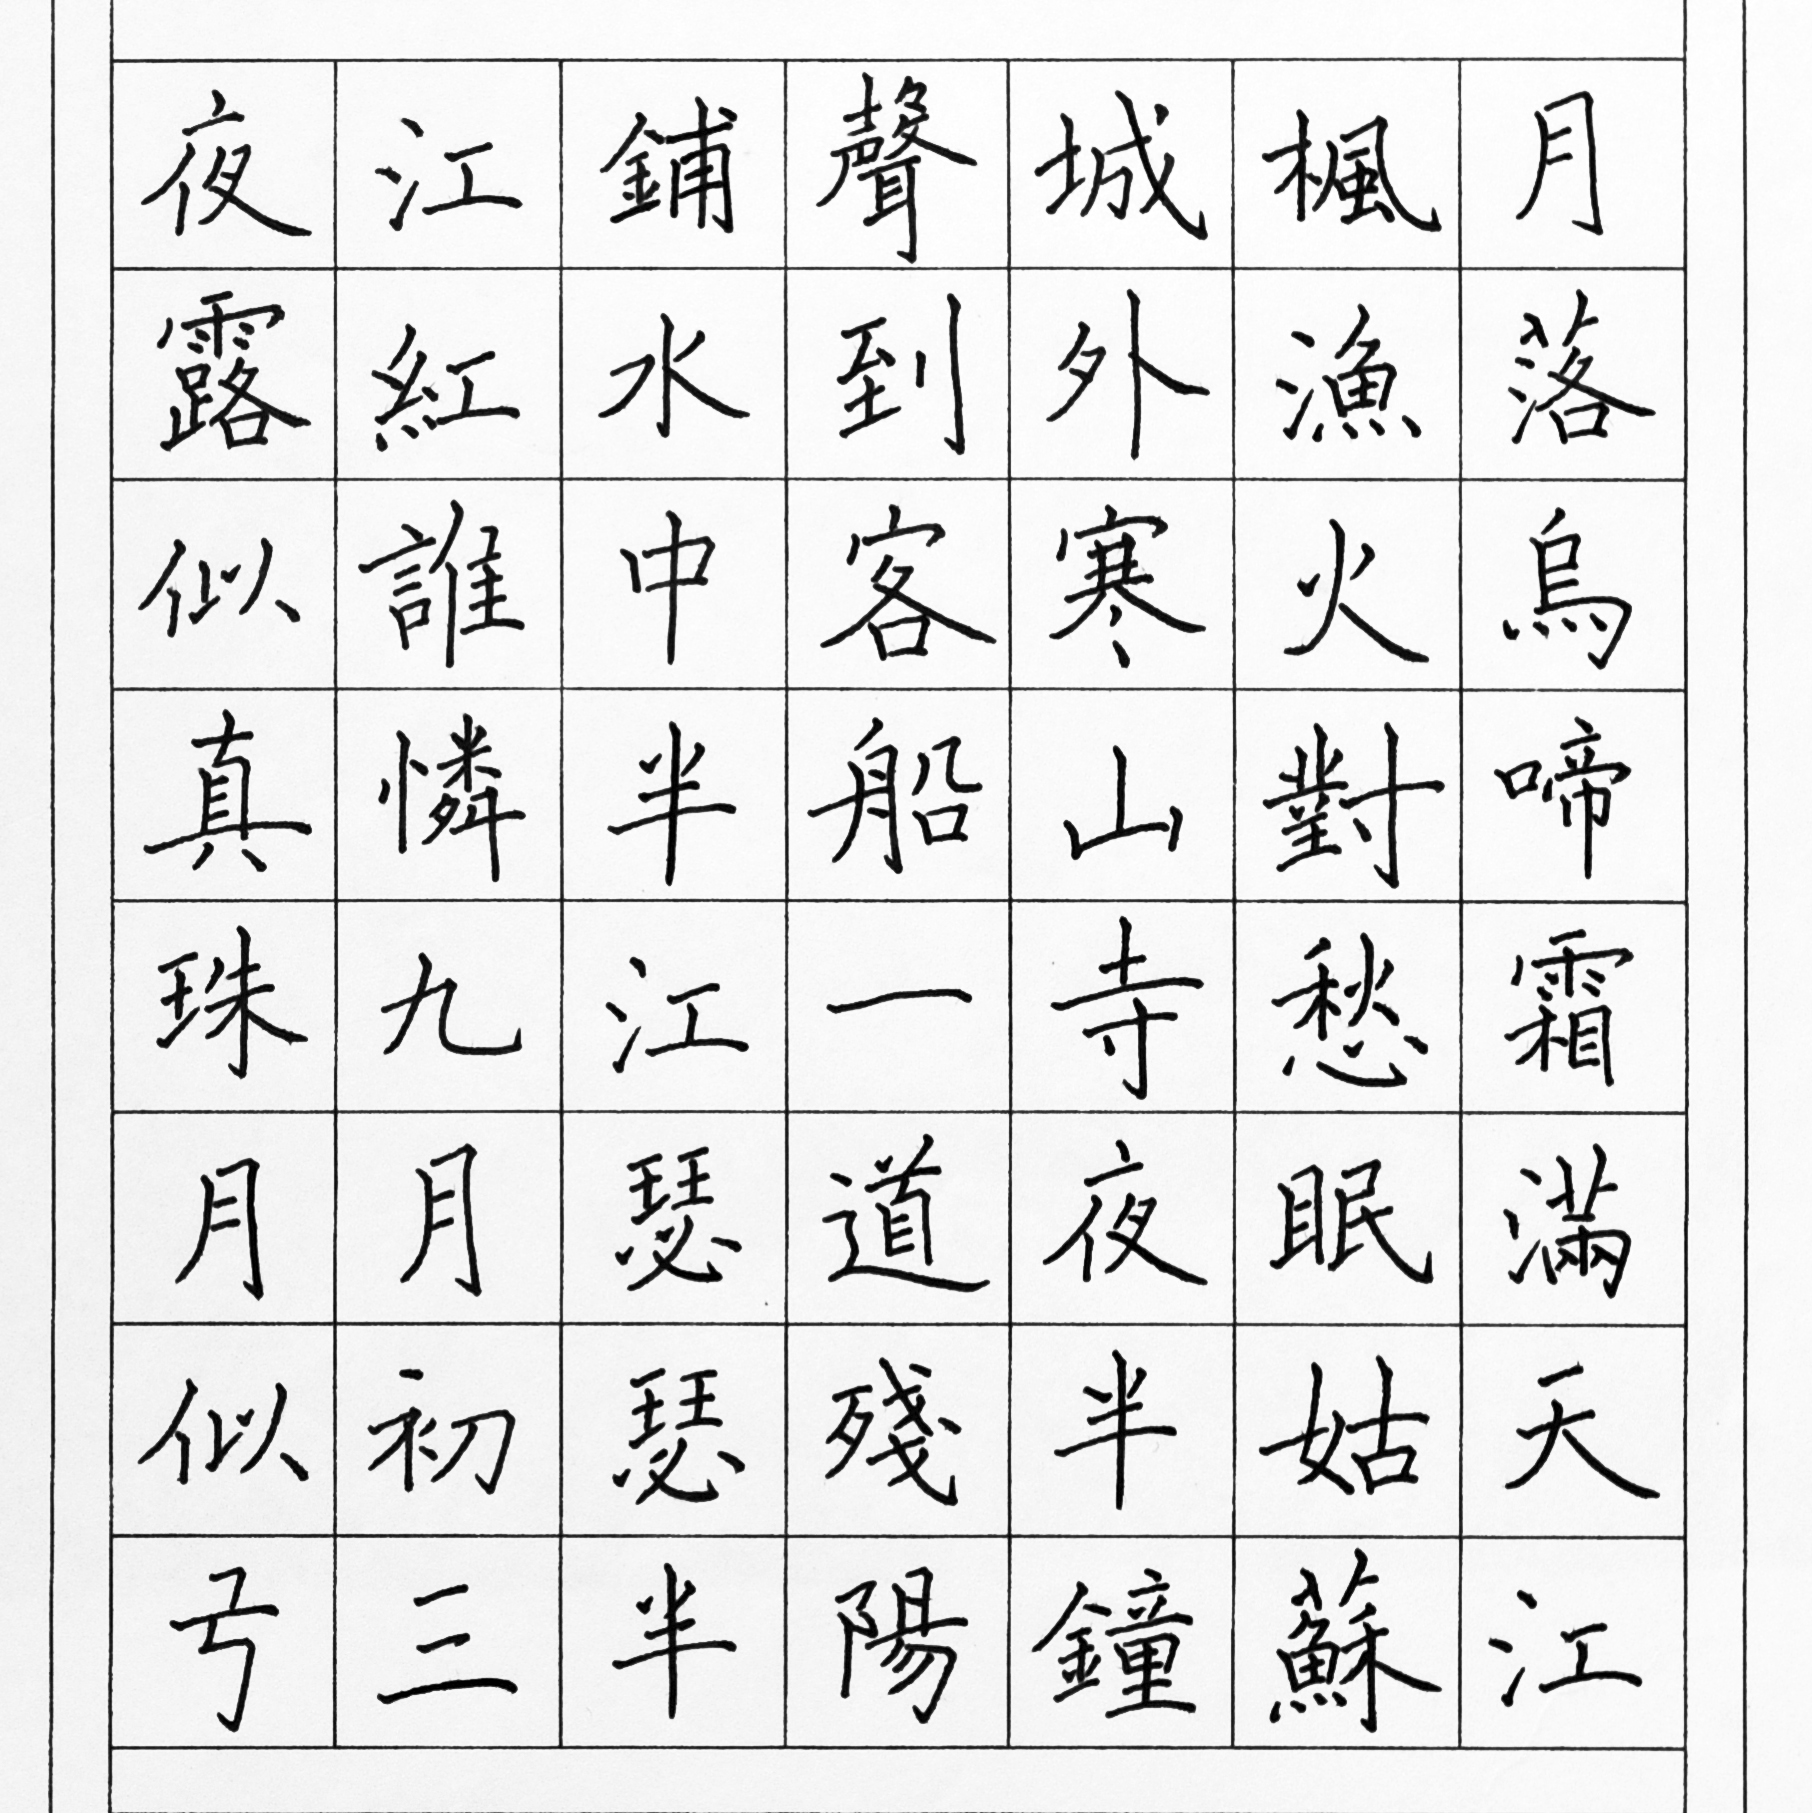 月落烏啼霜滿天江
楓漁火對愁眠姑蘇
城外寒山寺夜半鐘
聲到客船一道殘陽
鋪水中半江瑟瑟半
江紅誰憐九月初三
夜露似真珠月似弓